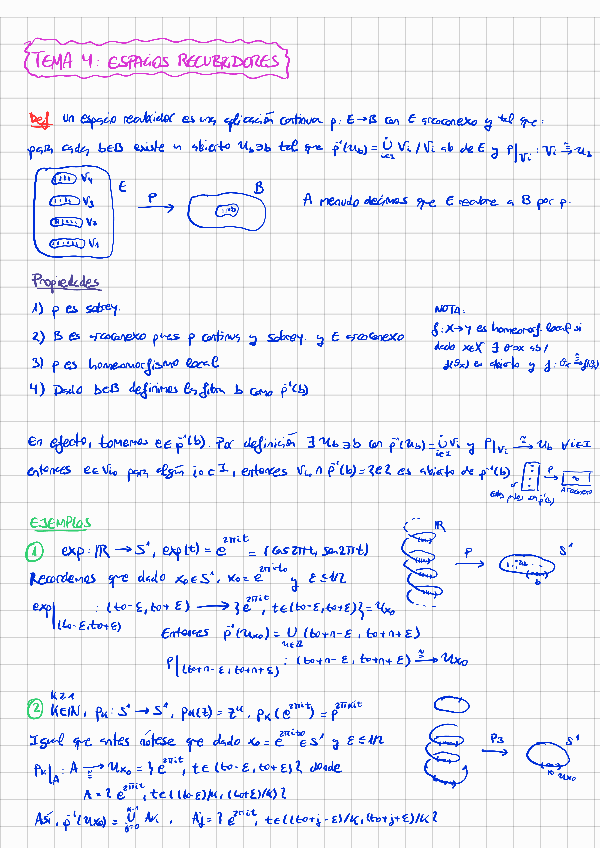 TEMA 4: ESPACIOS RECUBRIDORES
Def un espacio recubridor es una aplicación continua p: E→B con E arcoconexo y tal que:
para cada b∈B existe un abierto U_b∋b tal que p⁻¹(U_b) = ⋃̇_{i∈I} V_i / V_i ab de E y p|_{V_i} : V_i ≅→ U_b
V4
V3
V2
V1
E
P
B
b
A menudo decimos que E recubre a B por p.
Propiedades
1) p es sobrey.
2) B es arcoconexo pues p continua y sobrey. y E arcoconexo
3) p es homeomorfismo local
4) Dado b∈B definimos la fibra b como p⁻¹(b)
NOTA:
f: X→Y es homeomorf. local si
dado x∈X ∃ θx∋x ab /
f(θx) es abierto y f: θx ≅→ f(θx)
En efecto, tomemos e∈p⁻¹(b). Por definición ∃ U_b∋b con p⁻¹(U_b) = ⋃̇_{i∈I} V_i y p|_{V_i} ≅→ U_b ∀i∈I
entonces e∈V_{i0} para algún i0∈I, entonces V_{i0} ∩ p⁻¹(b) = {e} es abierto de p⁻¹(b)
P
EJEMPLOS
1 exp: ℝ → S¹, exp(t) = e^{2πit} = (cos 2πt, sen 2πt)
Recordemos que dado x0∈S¹, x0 = e^{2πit0} y ε≤1/2
exp|_{(t0-ε, t0+ε)} : (t0-ε, t0+ε) → {e^{2πit}, t∈(t0-ε, t0+ε)} = U_{x0}
Entonces p⁻¹(U_{x0}) = ⋃_{n∈ℤ} (t0+n-ε, t0+n+ε)
p|_{(t0+n-ε, t0+n+ε)} : (t0+n-ε, t0+n+ε) ≅→ U_{x0}
ℝ
P
S¹
b
K≥1
2 K∈ℕ, p_K: S¹ → S¹, p_K(z) = z^K, p_K(e^{2πit}) = e^{2πKit}
Igual que antes nótese que dado x0 = e^{2πit0} ∈ S¹ y ε≤1/2
p_K|_A : A ≅→ U_{x0} = {e^{2πit}, t∈(t0-ε, t0+ε)} donde
A = {e^{2πit}, t∈((t0-ε)/K, (t0+ε)/K)}
Así, p⁻¹(U_{x0}) = ⋃̇_{j=0}^{K-1} A_K, A_j = {e^{2πit}, t∈((t0+j-ε)/K, (t0+j+ε)/K)}
P3
S¹
x0 U_{x0}